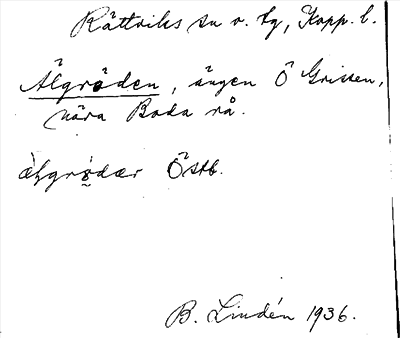 Rättviks sn o. tg, Kopp. l.
Älgröden, ängen Ö Grissen,
nära Boda rå.
älgrödær Östb.
B. Lindén 1936.